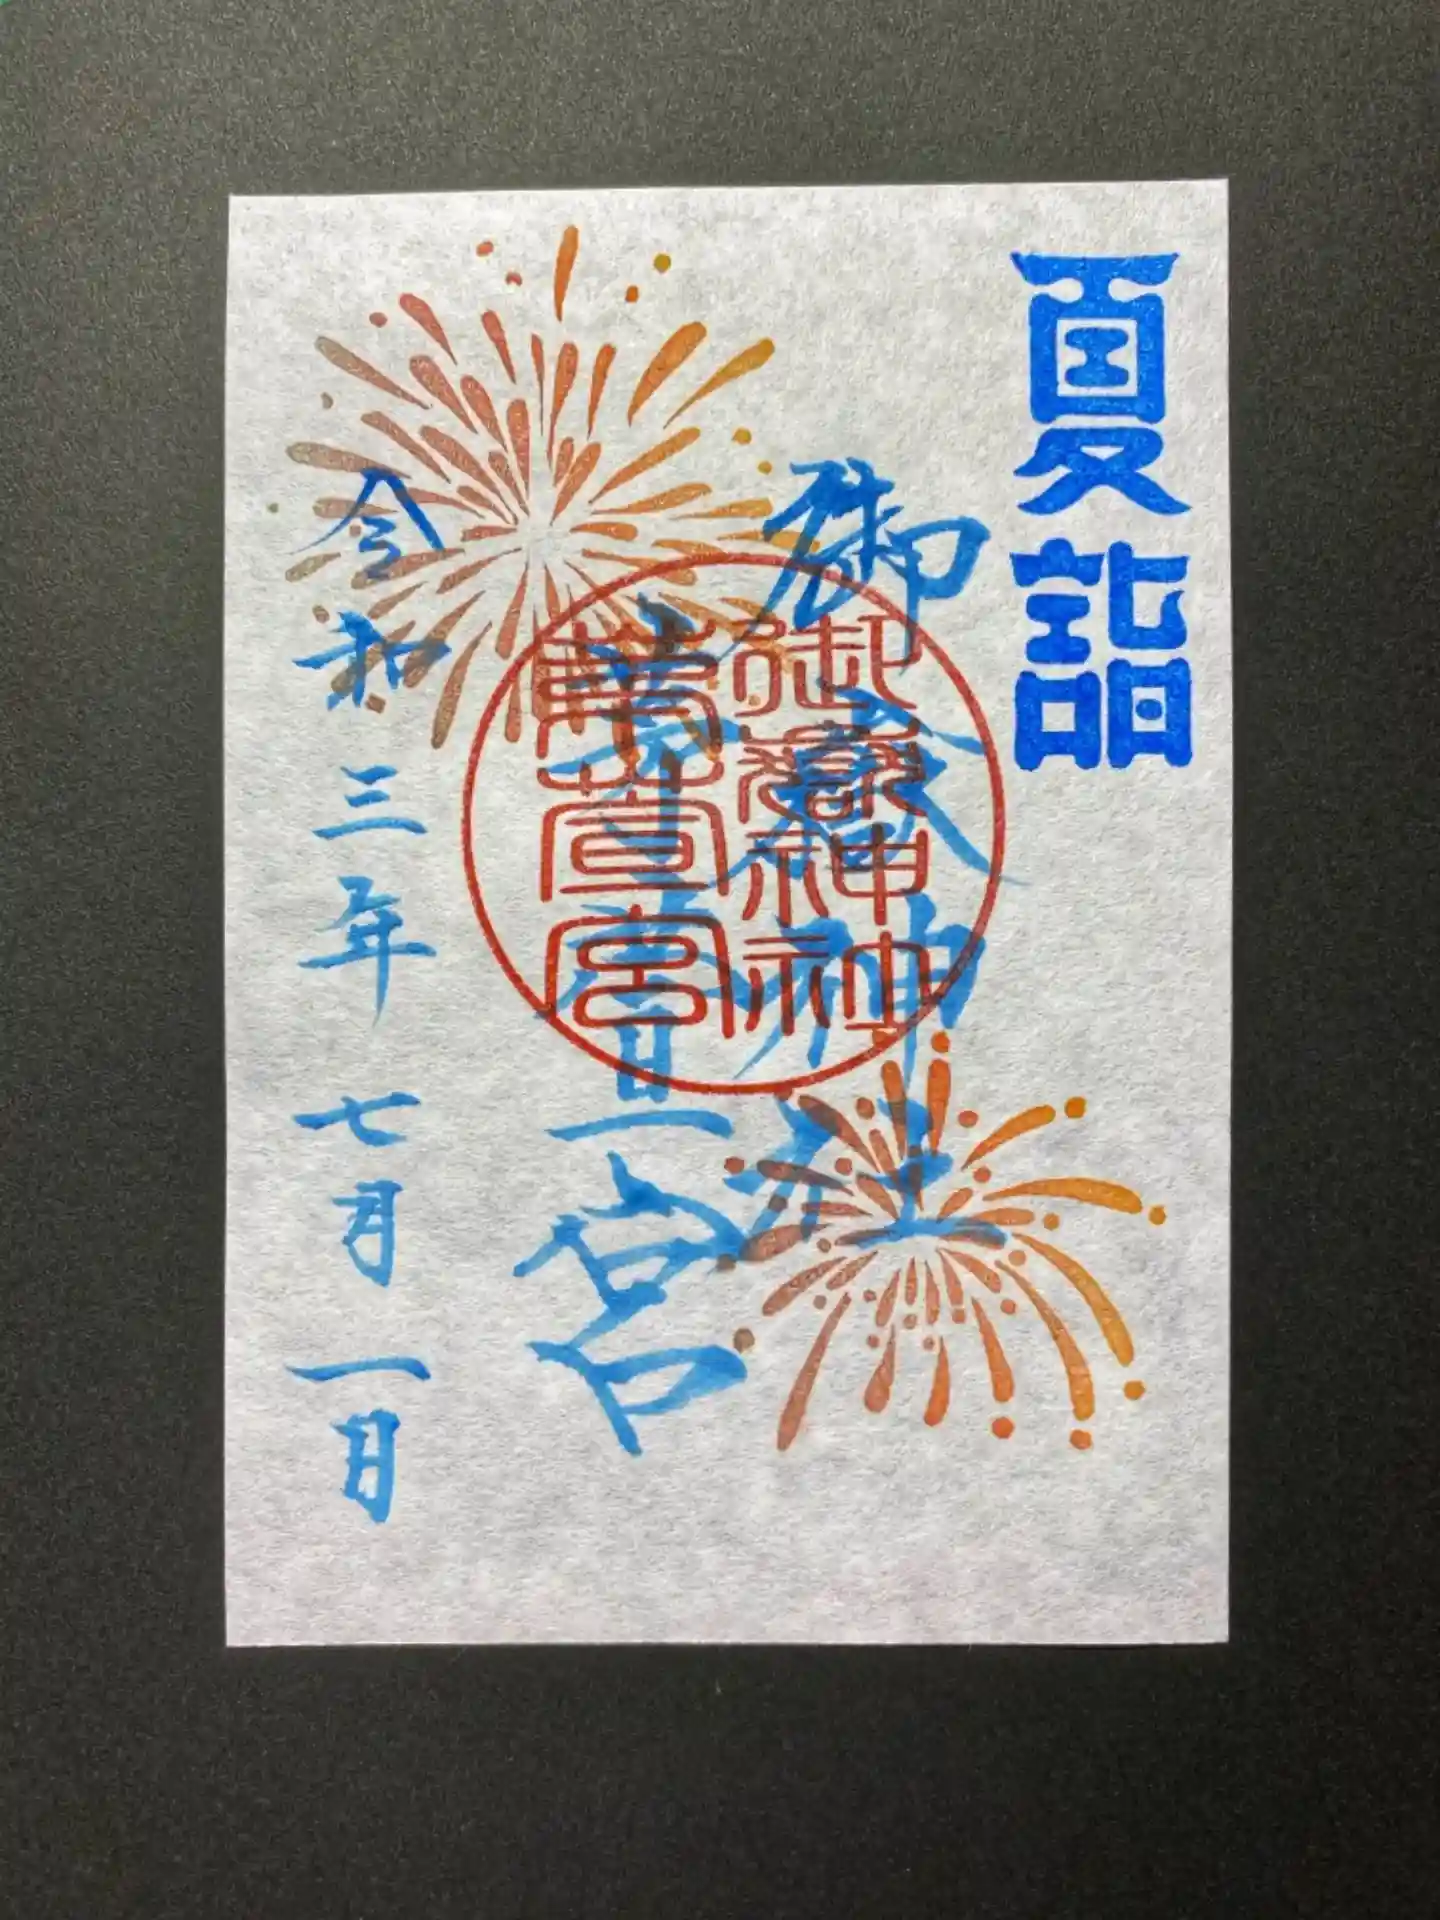 夏詣
御嶽神社
茅萱宮
令和三年七月一日
御嶽神社
茅萱宮